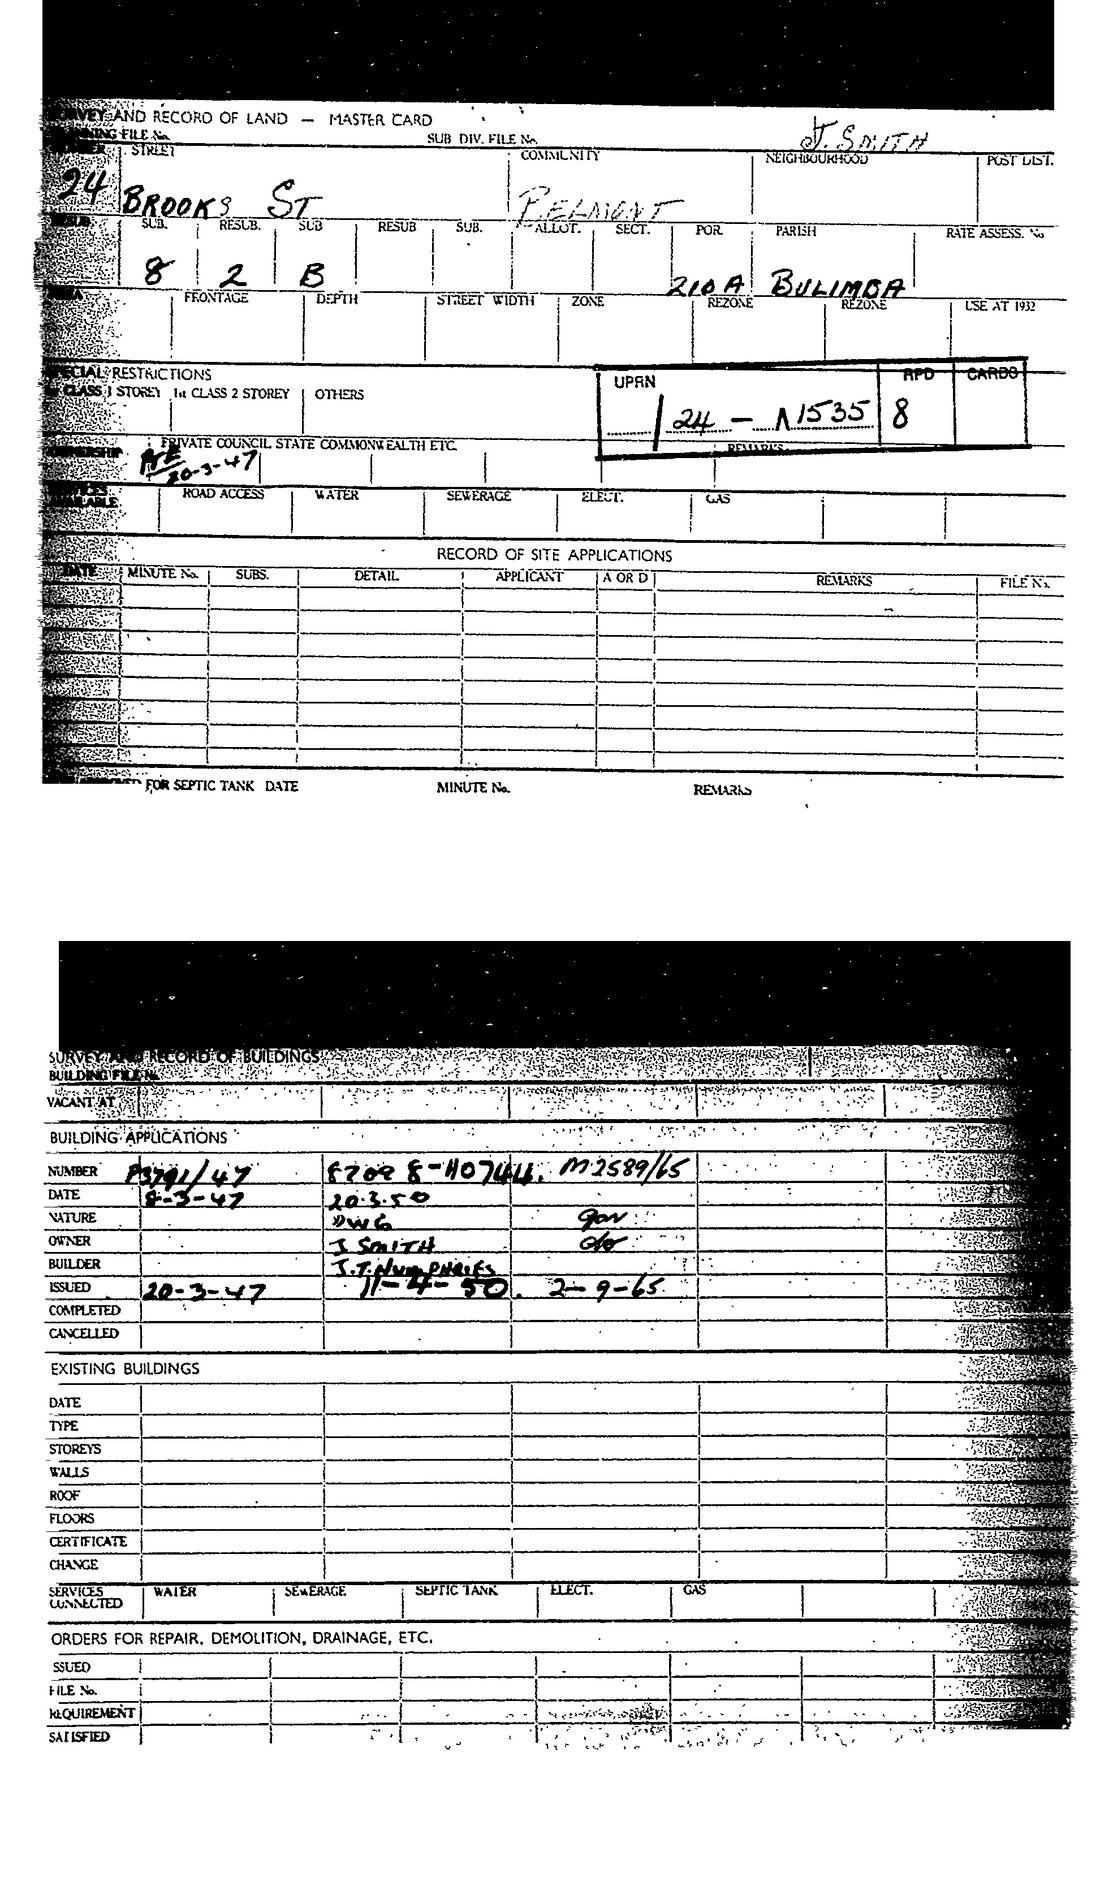 SURVEY AND RECORD OF LAND — MASTER CARD
PLANNING FILE No. SUB DIV. FILE No. J. SMITH
NUMBER STREET COMMUNITY NEIGHBOURHOOD POST DIST.
24 BROOKS ST BELMONT
RESUB. SUB. RESUB. SUB RESUB SUB. ALLOT. SECT. POR. PARISH RATE ASSESS. No
8 2 B 210A BULIMBA
AREA FRONTAGE DEPTH STREET WIDTH ZONE REZONE REZONE USE AT 1932
SPECIAL RESTRICTIONS
CLASS 1 STOREY 1st CLASS 2 STOREY OTHERS
UPRN RPD CARDS
/ 24 — N1535 8
OWNERSHIP PRIVATE COUNCIL STATE COMMONWEALTH ETC. REMARKS
20-3-47
SERVICES AVAILABLE ROAD ACCESS WATER SEWERAGE ELECT. GAS
RECORD OF SITE APPLICATIONS
DATE MINUTE No. SUBS. DETAIL APPLICANT A OR D REMARKS FILE No.
FOR SEPTIC TANK DATE MINUTE No. REMARKS
SURVEY AND RECORD OF BUILDINGS
BUILDING FILE No.
VACANT AT
BUILDING APPLICATIONS
NUMBER P3791/47 8209 8-H0744. M2589/65
DATE 8-3-47 20.3.50
NATURE DWG gar
OWNER J SMITH do
BUILDER J.T. HUMPHRIES
ISSUED 20-3-47 11-4-50. 2-9-65
COMPLETED
CANCELLED
EXISTING BUILDINGS
DATE
TYPE
STOREYS
WALLS
ROOF
FLOORS
CERTIFICATE
CHANGE
SERVICES CONNECTED WATER SEWERAGE SEPTIC TANK ELECT. GAS
ORDERS FOR REPAIR, DEMOLITION, DRAINAGE, ETC.
ISSUED
FILE No.
REQUIREMENT
SATISFIED